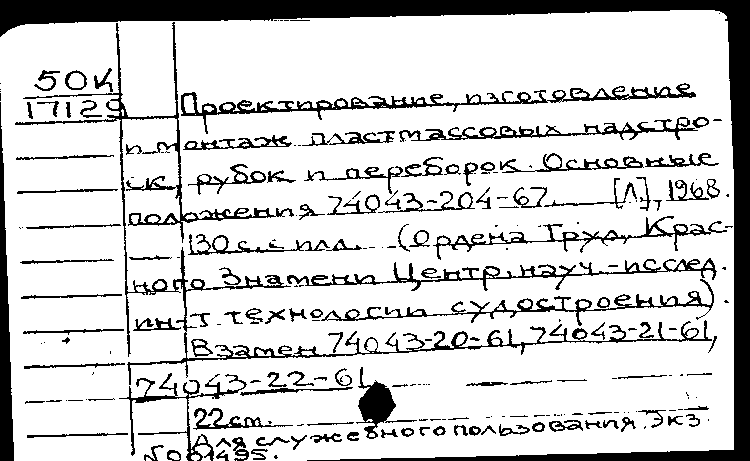 50К
17129
Проектирование, изготовление
и монтаж пластмассовых надстро-
ек, рубок и переборок. Основные
положения 74043-204-67. [Л], 1968.
130 с. с илл. (Ордена Труд. Крас-
ного Знамени Центр. науч.-исслед.
ин-т технологии судостроения).
Взамен 74043-20-61, 74043-21-61,
74043-22-61.
22 см.
Для служебного пользования. Экз.
№001495.